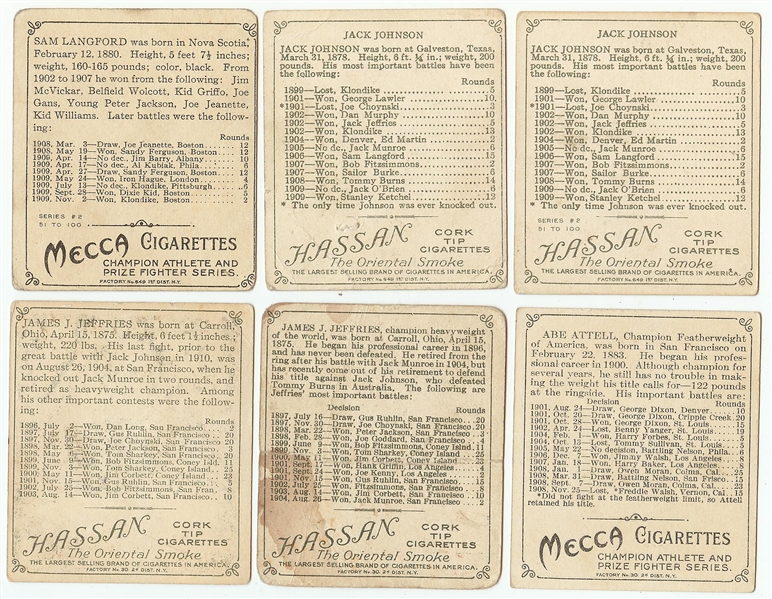 SAM LANGFORD was born in Nova Scotia,
February 12, 1880. Height, 5 feet 7½ inches;
weight, 160-165 pounds; color, black. From
1902 to 1907 he won from the following: Jim
McVickar, Belfield Wolcott, Kid Griffo, Joe
Gans, Young Peter Jackson, Joe Jeanette,
Kid Williams. Later battles were the follow-
ing:
Rounds
1908, Mar. 3—Draw, Joe Jeanette, Boston.... 12
1908, May —Won, Sandy Ferguson, Boston... 12
1909, Apr. 14—No dec., Jim Barry, Albany.... 10
1909, Apr. 17—No dec., Al Kubiak, Phila..... 6
1909, Apr. 27—Draw, Sandy Ferguson, Boston. 12
1909, May 24—Won, Iron Hague, London...... 4
1909, July 13—No dec., Klondike, Pittsburgh.. 6
1909, Sept. 28—Won, Dixie Kid, Boston....... 5
1909, Nov. 2—Won, Klondike, Boston......... 2
SERIES #2
51 TO 100
MECCA CIGARETTES
CHAMPION ATHLETE AND
PRIZE FIGHTER SERIES.
FACTORY No. 649 1st DIST. N.Y.
JACK JOHNSON
JACK JOHNSON was born at Galveston, Texas,
March 31, 1878. Height, 6 ft. ¼ in.; weight, 200
pounds. His most important battles have been
the following:
Rounds
1899—Lost, Klondike........ 5
1901—Won, George Lawler........ 10
*1901—Lost, Joe Choynski........ 3
1902—Won, Dan Murphy........ 10
1902—Won, Jack Jeffries........ 5
1902—Won, Klondike........ 13
1904—Won, Denver, Ed Martin........ 2
1905—No dc., Jack Munroe........ 6
1906—Won, Sam Langford........ 15
1907—Won, Bob Fitzsimmons........ 2
1907—Won, Sailor Burke........ 6
1908—Won, Tommy Burns........ 14
1909—No dc., Jack O'Brien........ 6
1909—Won, Stanley Ketchel........ 12
* The only time Johnson was ever knocked out.
HASSAN
CORK
TIP
CIGARETTES
The Oriental Smoke
THE LARGEST SELLING BRAND OF CIGARETTES IN AMERICA.
FACTORY No. 649 1st DIST. N.Y.
JACK JOHNSON
JACK JOHNSON was born at Galveston, Texas,
March 31, 1878. Height, 6 ft. ¼ in.; weight, 200
pounds. His most important battles have been
the following:
Rounds
1899—Lost, Klondike........ 5
1901—Won, George Lawler........ 10
*1901—Lost, Joe Choynski........ 3
1902—Won, Dan Murphy........ 10
1902—Won, Jack Jeffries........ 5
1902—Won, Klondike........ 13
1904—Won, Denver, Ed Martin........ 2
1905—No dc., Jack Munroe........ 6
1906—Won, Sam Langford........ 15
1907—Won, Bob Fitzsimmons........ 2
1907—Won, Sailor Burke........ 6
1908—Won, Tommy Burns........ 14
1909—No dc., Jack O'Brien........ 6
1909—Won, Stanley Ketchel........ 12
* The only time Johnson was ever knocked out.
SERIES #2
51 TO 100
HASSAN
CORK
TIP
CIGARETTES
The Oriental Smoke
THE LARGEST SELLING BRAND OF CIGARETTES IN AMERICA.
FACTORY No. 649 1st DIST. N.Y.
JAMES J. JEFFRIES was born at Carroll,
Ohio, April 15, 1875. Height, 6 feet 1½ inches;
weight, 220 lbs. His last fight, prior to the
great battle with Jack Johnson in 1910, was
on August 26, 1904, at San Francisco, when he
knocked out Jack Munroe in two rounds, and
retired as heavyweight champion. Among
his other important contests were the follow-
ing:
Rounds
1896, July 2—Won, Dan Long, San Francisco.. 2
1897, July 17—Draw, Gus Ruhlin, San Francisco 20
1897, Nov. 30—Draw, Joe Choynski, San Francisco 20
1898, Mar. 22—Won, Peter Jackson, S. Francisco 3
1898, May 6—Won, Tom Sharkey, S. Francisco 20
1899, June 9—Won, Bob Fitzsimmons, Coney Isl. 11
1899, Nov. 3—Won, Tom Sharkey, Coney Island. 25
1900, May 11—Won, Jim Corbett, Coney Island. 23
1901, Nov. 15—Won, Gus Ruhlin, San Francisco.. 5
1902, July 25—Won, Bob Fitzsimmons, San Fran. 8
1903, Aug. 14—Won, Jim Corbett, San Francisco. 10
HASSAN
CORK
TIP
CIGARETTES
The Oriental Smoke
THE LARGEST SELLING BRAND OF CIGARETTES IN AMERICA.
FACTORY No. 30 2d DIST. N.Y.
JAMES J. JEFFRIES, champion heavyweight
of the world, was born at Carroll, Ohio, April 15,
1875. He began his professional career in 1896,
and has never been defeated. He retired from the
ring after his battle with Jack Munroe in 1904, but
has recently come out of his retirement to defend
his title against Jack Johnson, who defeated
Tommy Burns in Australia. The following are
Jeffries' most important battles:
Decision Rounds
1897, July 16—Draw, Gus Ruhlin, San Francisco... 20
1897, Nov. 30—Draw, Joe Choynski, San Francisco. 20
1898, Mar. 22—Won, Peter Jackson, San Francisco.. 3
1898, Feb. 28—Won, Joe Goddard, San Francisco... 4
1899, June 9—Won, Bob Fitzsimmons, Coney Island 11
1899, Nov. 3—Won, Tom Sharkey, Coney Island
1900, May 11—Won, Jim Corbett, Coney Island
1901, Sept. 17—Won, Hank Griffin, Los Angeles
1901, Sept. 24—Won, Joe Kenny, Los Angeles
1901, Nov. 15—Won, Gus Ruhlin, San Francisco
1902, July 25—Won, Fitzsimmons, San Francisco... 8
1903, Aug. 14—Won, Jim Corbett, San Francisco.... 10
1904, Aug. —Won, Jack Munroe, San Francisco... 2
HASSAN
CORK
TIP
CIGARETTES
The Oriental Smoke
THE LARGEST SELLING BRAND OF CIGARETTES IN AMERICA.
FACTORY No. 30 2d DIST. N.Y.
ABE ATTELL, Champion Featherweight
of America, was born in San Francisco on
February 22, 1883. He began his profes-
sional career in 1900. Although champion for
several years, he still has no trouble in mak-
ing the weight his title calls for—122 pounds
at the ringside. His important battles are:
Decision Rounds
1901, Aug. 24—Draw, George Dixon, Denver..... 10
1901, Oct. 20—Draw, George Dixon, Cripple Creek 20
1901, Oct. 28—Won, George Dixon, St. Louis.... 15
1902, Apr. 24—Lost, Benny Yanger, St. Louis.... 19
1904, Feb. 1—Won, Harry Forbes, St. Louis..... 5
1904, Oct. 13—Lost, Tommy Sullivan, St. Louis.. 5
1905, May 22—No decision, Battling Nelson, Phila. 6
1906, Dec. 7—Won, Jimmy Walsh, Los Angeles.. 8
1907, Jan. 18—Won, Harry Baker, Los Angeles.. 8
1908, Jan. 1—Draw, Owen Moran, Colma, Cal... 25
1908, Mar. 31—Draw, Battling Nelson, San Frisco 15
1908, Sept. 7—Draw, Owen Moran, Colma, Cal... 23
1908, Nov. 25—Lost, *Freddie Walsh, Vernon, Cal. 15
*Did not fight at the featherweight limit, so Attell
retained his title.
MECCA CIGARETTES
CHAMPION ATHLETE AND
PRIZE FIGHTER SERIES.
FACTORY No. 30 2d DIST. N.Y.